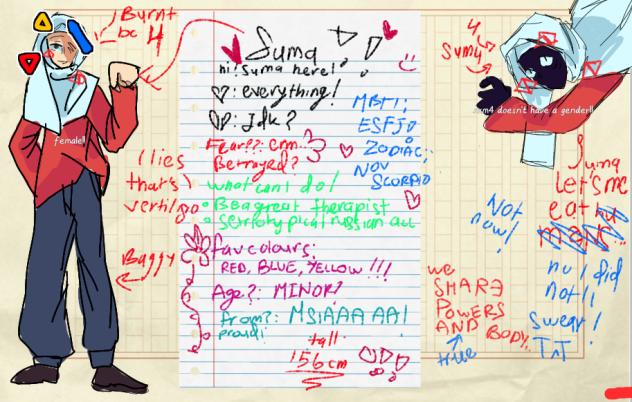 Burnt
bc 4
female!!
(lies
that's
vertiligo
Baggy
Suma
hi! Suma here!
: everything!
: Idk?
Fear??: Enn..
Betrayed?
what can I do!
Be a great therapist
fav colours:
RED, BLUE, YELLOW!!!
Age?: MINOR?
from?: MSIAAAAA!
proud!
tall
156cm
MBTI:
ESFJ
ZODIAC:
NOV
SCORPIO
4
Sum4
sum4 doesn't have a gender!!
Suma
Let's me
eat
Not
now!
no I did
not I
swear!
TnT
we
SHARE
POWERS
AND BODY..
true